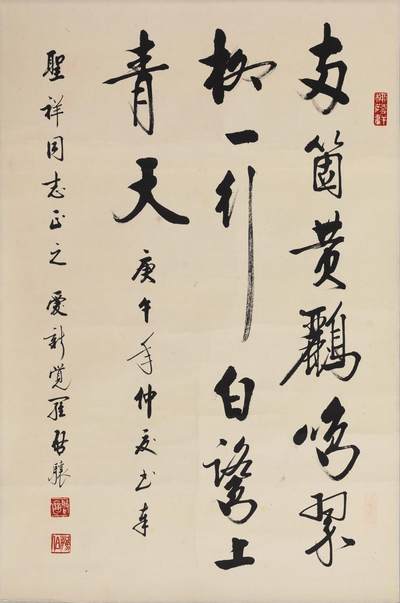 两箇黄鸝鸣翠
柳一行白鷺上
青天 庚午年仲夏书奉
聖祥同志正之 愛新覺羅啟驤